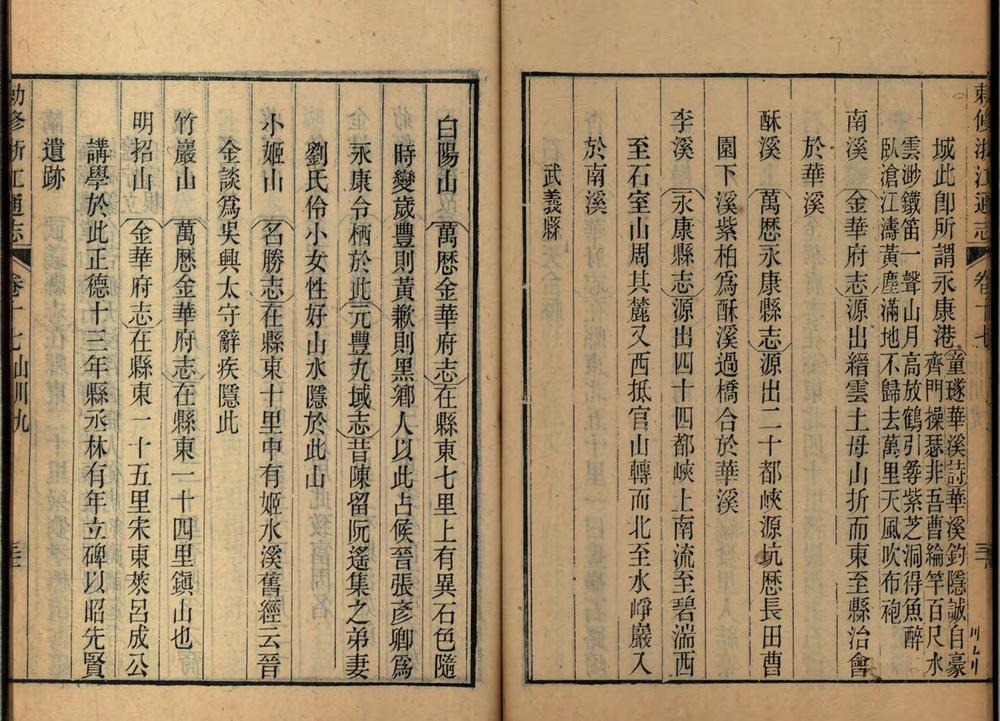 敕修浙江通志 卷十七
城此卽所謂永康港童璲華溪詩華溪釣隱誠自豪
齊門操瑟非吾曹綸竿百尺水
雲渺鐵笛一聲山月高放鶴引尋紫芝洞得魚醉
臥滄江濤黃塵滿地不歸去萬里天風吹布袍
南溪 金華府志源出縉雲土母山折而東至縣治會
於華溪
酥溪 萬歷永康縣志源出二十都峽源坑歷長田曹
園下溪紫柏爲酥溪過橋合於華溪
李溪 永康縣志源出四十四都峽上南流至碧湍西
至石室山周其麓又西抵官山轉而北至水崢巖入
於南溪
武義縣
白陽山 萬歷金華府志在縣東七里上有異石色隨
時變歲豐則黃歉則黑鄉人以此占候晉張彥卿爲
永康令栖於此元豐九域志昔陳留阮遙集之弟妻
劉氏伶小女性好山水隱於此山
小姬山 名勝志在縣東十里中有姬水溪舊經云晉
金談爲吳興太守辭疾隱此
竹巖山 萬歷金華府志在縣東一十四里鎭山也
明招山 金華府志在縣東一十五里宋東萊呂成公
講學於此正德十三年縣丞林有年立碑以昭先賢
遺跡
勅修浙江通志 卷十七 山川九